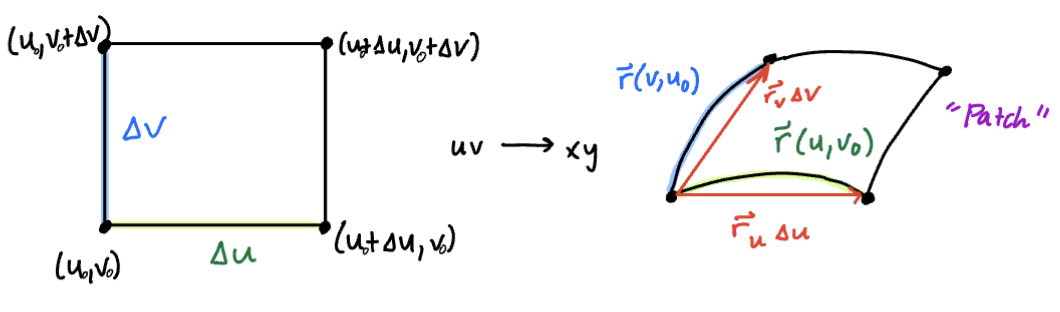 (u₀,v₀+Δv)
(u₀+Δu,v₀+Δv)
Δv
(u₀,v₀)
Δu
(u₀+Δu,v₀)
uv → xy
r⃗(v,u₀)
r⃗ᵥΔv
r⃗(u,v₀)
"Patch"
r⃗ᵤ Δu